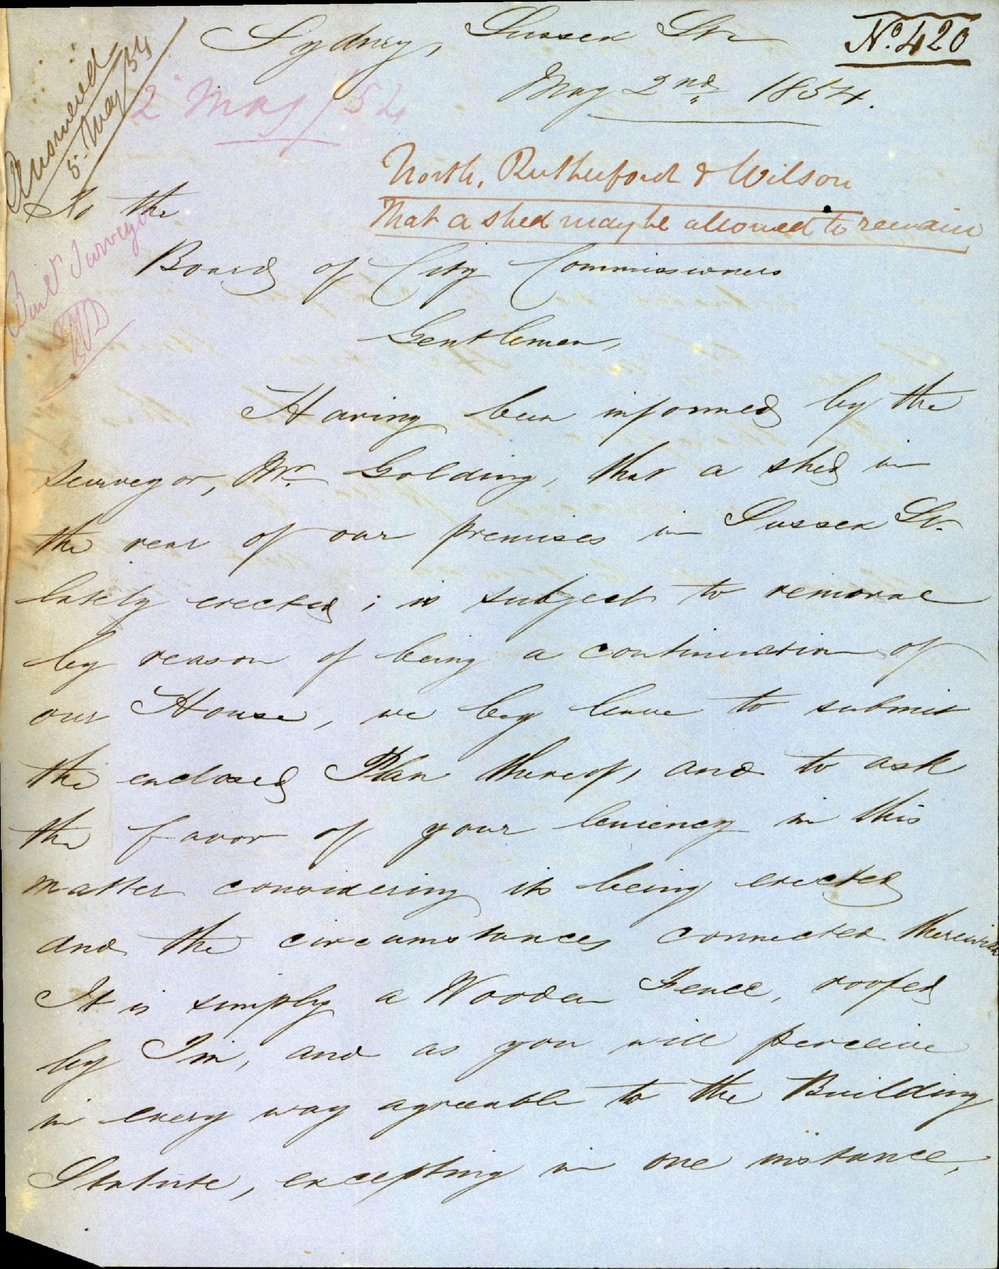 No. 420
Answered
5. May /54
Sydney, Sussex St.
May 2nd, 1854.
2 May /54
North, Rutherford & Wilson
that a shed may be allowed to remain
To the
Board of City Commissioners
Surveyor
Gentlemen,
Having been informed by the
surveyor, Mr. Golding, that a shed in
the rear of our premises in Sussex St.
lately erected; is subject to removal
by reason of being a continuation of
our House, we beg leave to submit
the enclosed Plan thereof, and to ask
the favor of your leniency in this
matter considering its being erected
and the circumstances connected therewith
It is simply a Wooden Fence, roofed
by Tin, and as you will perceive
in every way agreeable to the Building
Statute, excepting in one instance,